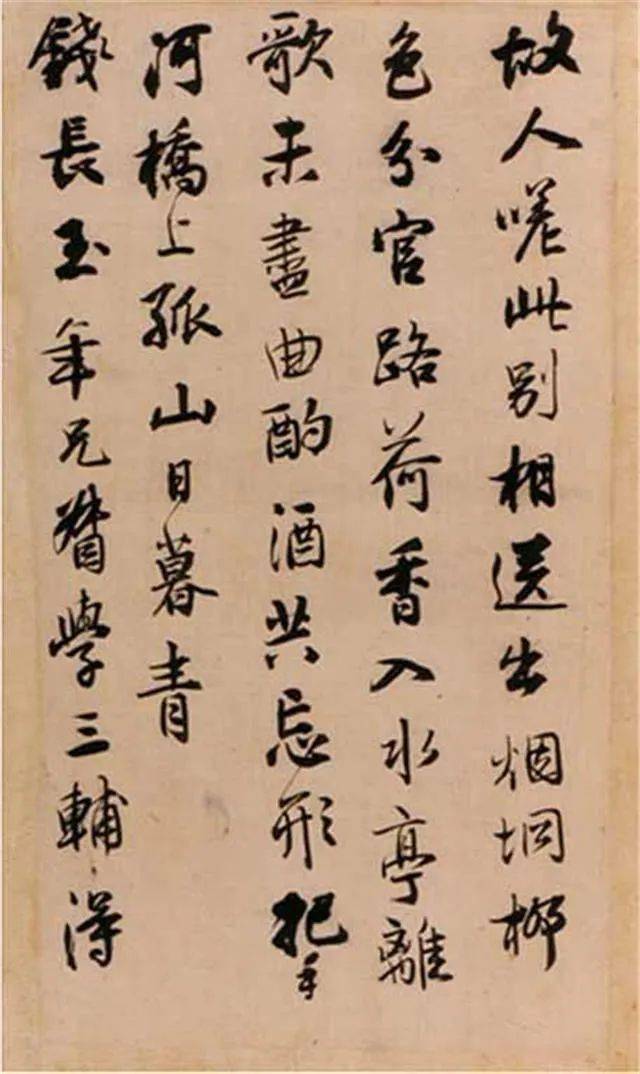 故人嗟此別相送出烟坰柳
色分官路荷香入水亭離
歌未盡曲酌酒共忘形把手
河橋上孤山日暮青
錢長玉年兄督學三輔得